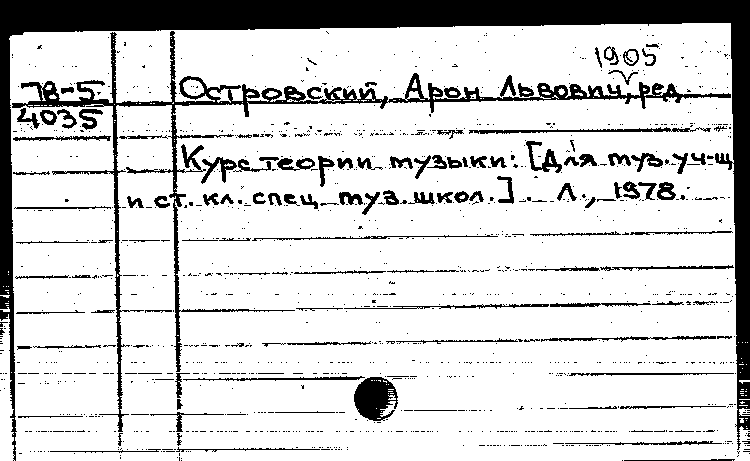 1905
78-5 Островский, Арон Львович, ред.
4035
Курс теории музыки: [Для муз. уч-щ
и ст. кл. спец. муз. школ.]. Л., 1978.